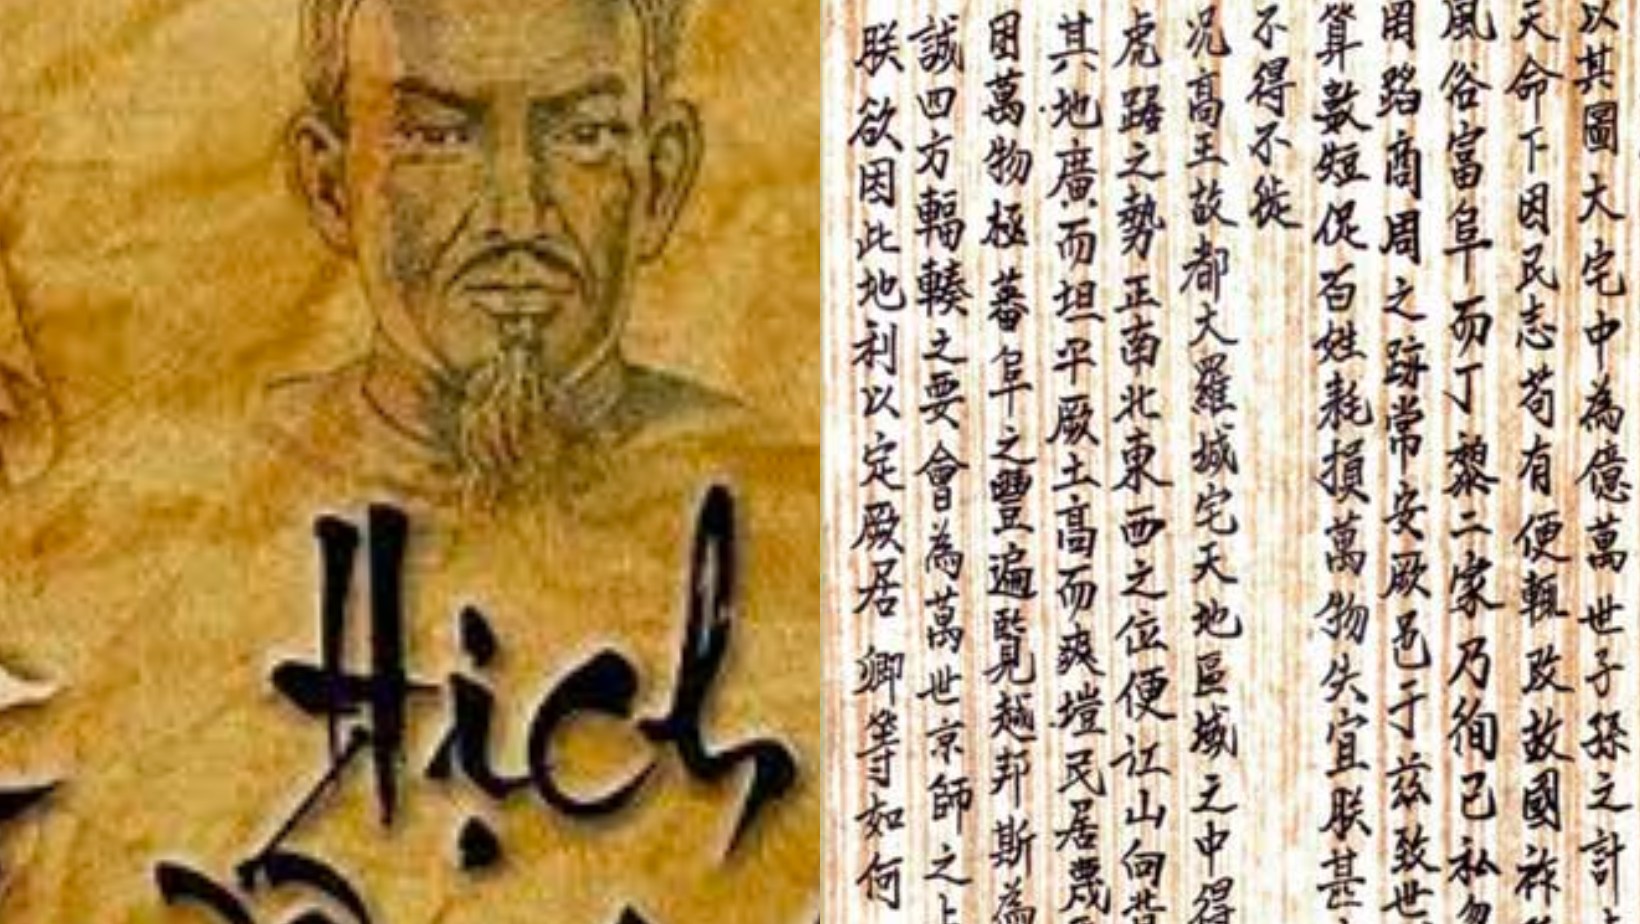 Hịch
以其圖大宅中為億萬世子孫之計
天命下因民志苟有便輒改故國祚
風俗富阜而丁黎二家乃徇己私
罔蹈商周之跡常安厥邑于茲致世
算數短促百姓耗損萬物失宜朕甚
不得不徙
况高王故都大羅城宅天地區域之中得
虎踞之勢正南北東西之位便江山向
其地廣而坦平厥土高而爽塏民居蔑
困萬物極蕃阜之豐遍覧越邦斯為
誠四方輻輳之要會為萬世京師之上
朕欲因此地利以定厥居卿等如何